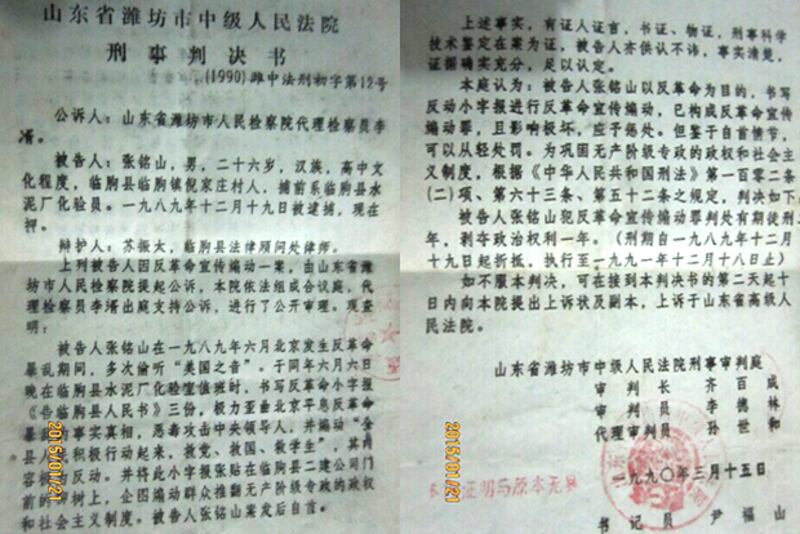 山东省潍坊市中级人民法院
刑事判决书
(1990)潍中法刑初字第12号
公诉人：山东省潍坊市人民检察院代理检察员李
湑。
被告人：张铭山，男，二十六岁，汉族，高中文
化程度，临朐县临朐镇倪家庄村人，捕前系临朐县水
泥厂化验员。一九八九年十二月十九日被逮捕，现在
押。
辩护人：苏振太，临朐县法律顾问处律师。
上列被告人因反革命宣传煽动一案，由山东省潍
坊市人民检察院提起公诉，本院依法组成合议庭，代
理检察员李湑出庭支持公诉，进行了公开审理。现查
明：
被告人张铭山在一九八九年六月北京发生反革命
暴乱期间，多次偷听“美国之音”。于同年六月六日
晚在临朐县水泥厂化验室值班时，书写反革命小字报
《告临朐县人民书》三份，极力歪曲北京平息反革命
暴乱的事实真相，恶毒攻击中央领导人，并煽动“全
县人民积极行动起来，救党、救国、救学生”，其内
容极为反动。并将此小字报张贴在临朐县二建公司门
前的树上，企图煽动群众推翻无产阶级专政的政权
和社会主义制度。被告人张铭山案发后自首。
2015/01/21
上述事实，有证人证言，书证、物证，刑事科学
技术鉴定在案为证，被告人亦供认不讳，事实清楚，
证据确实充分，足以认定。
本庭认为：被告人张铭山以反革命为目的，书写
反动小字报进行反革命宣传煽动，已构成反革命宣传
煽动罪，且影响极坏，应予惩处。但鉴于自首情节，
可以从轻处罚。为巩固无产阶级专政的政权和社会主
义制度，根据《中华人民共和国刑法》第一百零二条
(二)项、第六十三条、第五十二条之规定，判决如下：
被告人张铭山犯反革命宣传煽动罪判处有期徒刑二
年，剥夺政治权利一年。（刑期自一九八九年十二月
十九日起折抵，执行至一九九一年十二月十八日止）
如不服本判决，可在接到本判决书的第二天起十
日内向本院提出上诉状及副本，上诉于山东省高级人
民法院。
山东省潍坊市中级人民法院刑事审判庭
审判长 齐百成
审判员 李德林
代理审判员 孙世和
一九九〇年三月十五日
证明与原本无异
书记员 尹福山
2015/01/21